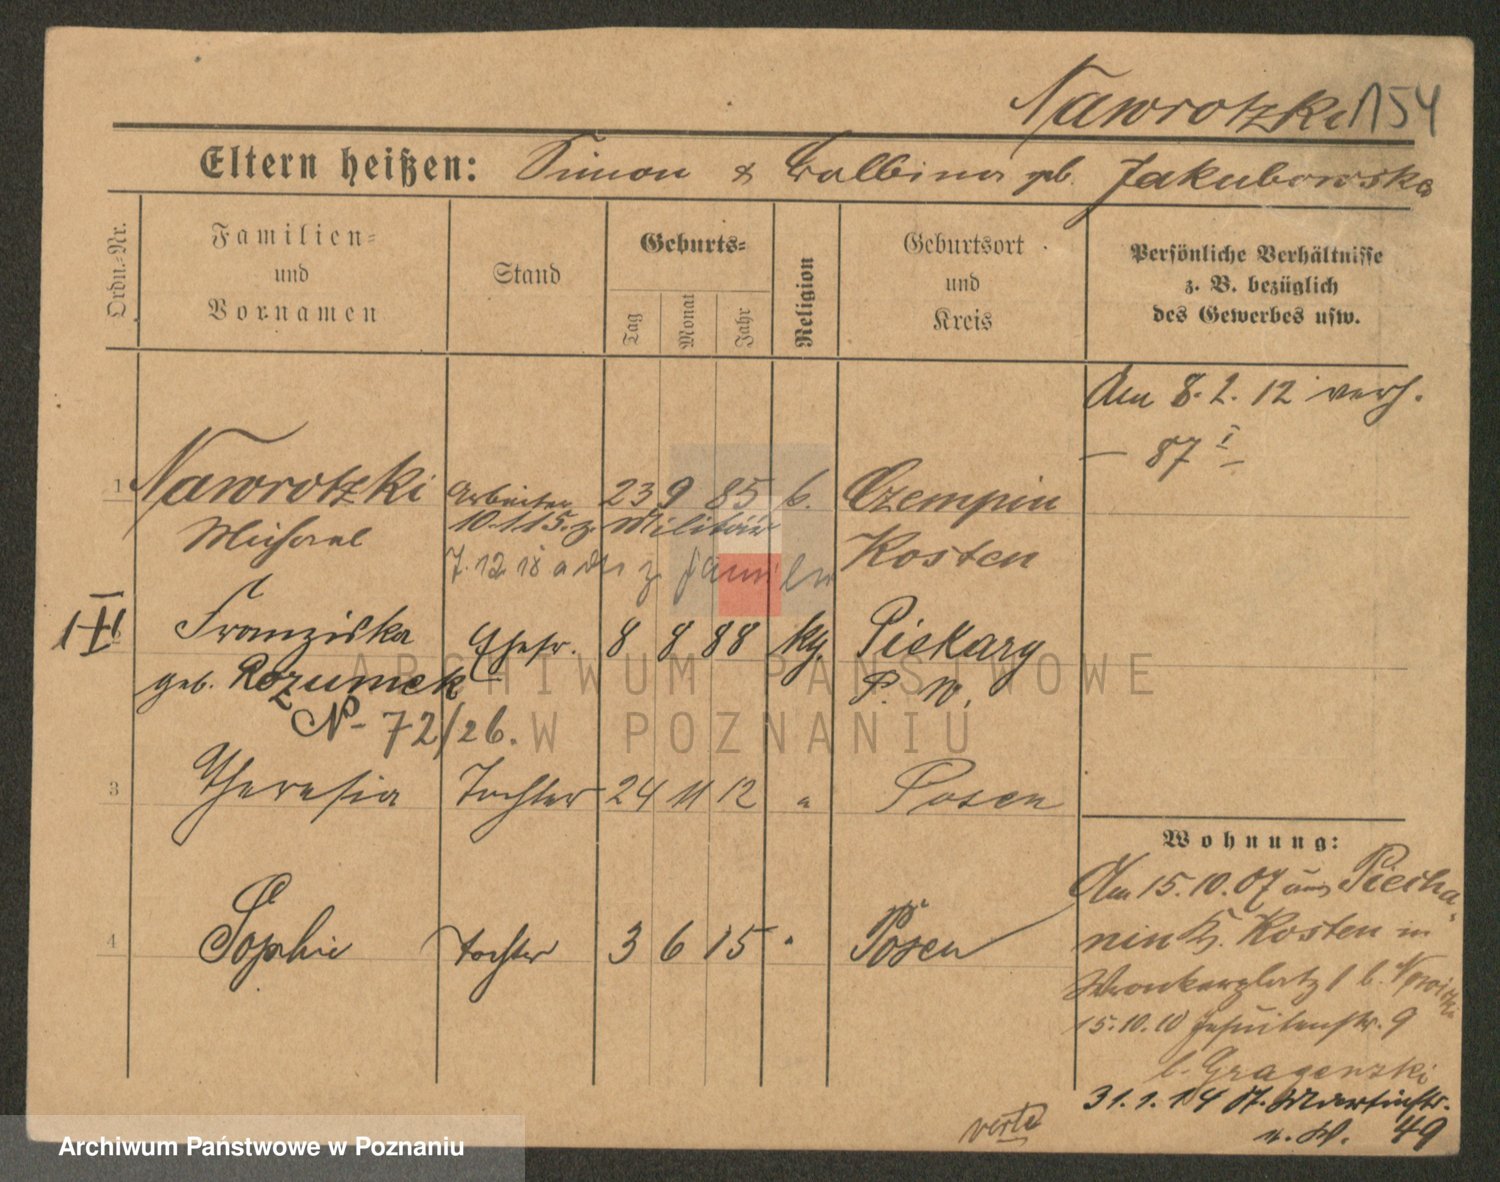 Nawrotzki 154
Eltern heißen: Simon & Balbina geb. Jakubowska
Ordn.-Nr.
Familien-
und
Vornamen
Stand
Geburts-
Tag
Monat
Jahr
Religion
Geburtsort
und
Kreis
Persönliche Verhältnisse
z. B. bezüglich
des Gewerbes usw.
Am 8. 2. 12 verh.
— 87 I —
1 Nawrotzki Arbeiter 23 9 85 k. Czempin
Michael 10.1.15. z. Militär Kosten
7.12.18 a d z Familie
2 Franziska Ehefr. 8 8 88 kg. Piekary
geb. Rozumek P. W.
No 72/26.
3 Theresia Tochter 24 11 12 " Posen
4 Sophie Tochter 3 6 15 " Posen
Wohnung:
Am 15.10.07 aus Piecha-
nin Kr. Kosten in
Wronkerplatz 1 b. Nowitzki
15.10.10 Jesuitenstr. 9
b. Gragenzki
31.1.14 St. Martinstr.
n. W. 49
verte
ARCHIWUM PAŃSTWOWE
W POZNANIU
Archiwum Państwowe w Poznaniu